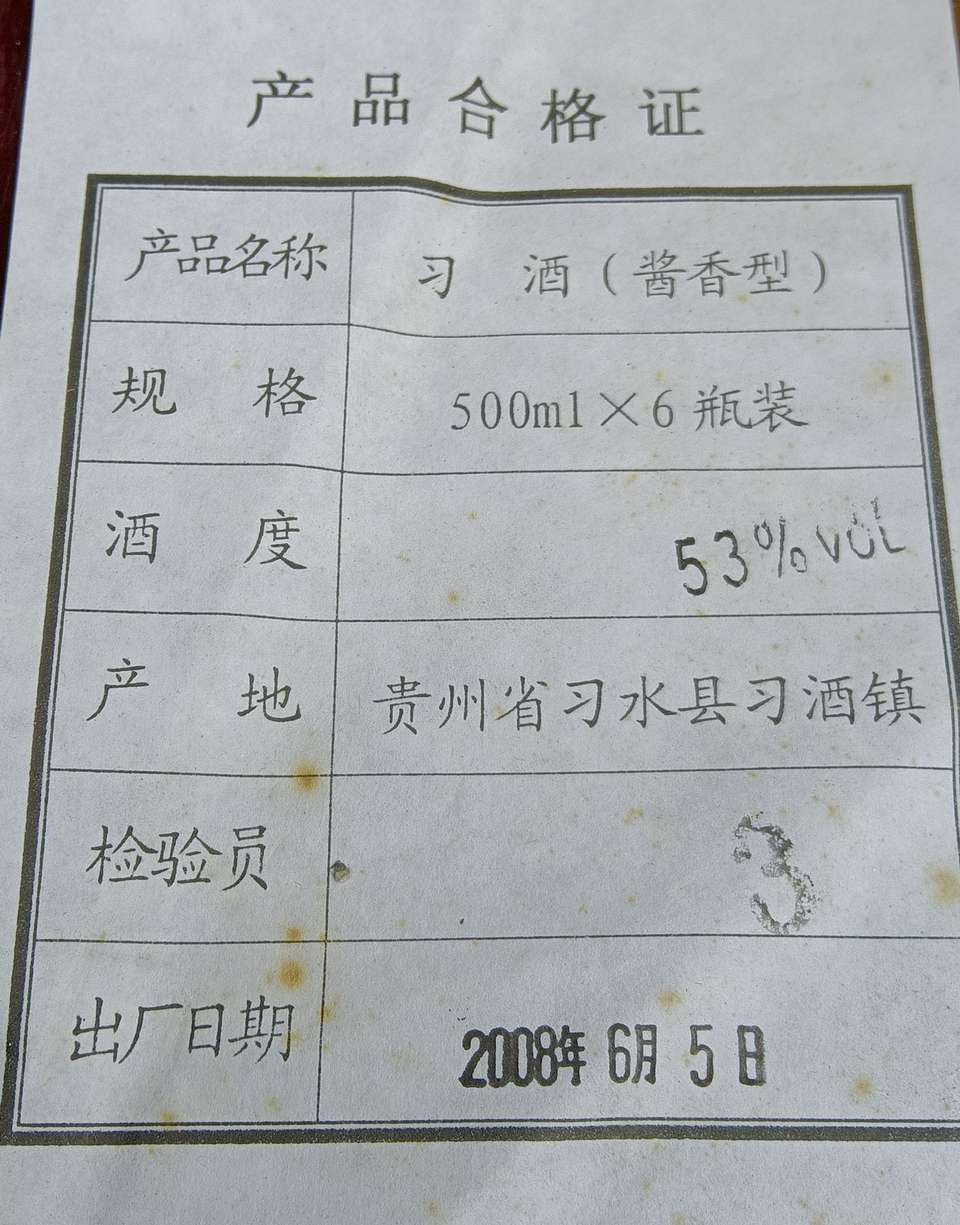 产品合格证
产品名称 习 酒（酱香型）
规 格 500ml×6瓶装
酒 度 53%VOL
产 地 贵州省习水县习酒镇
检验员 3
出厂日期 2008年 6月 5日